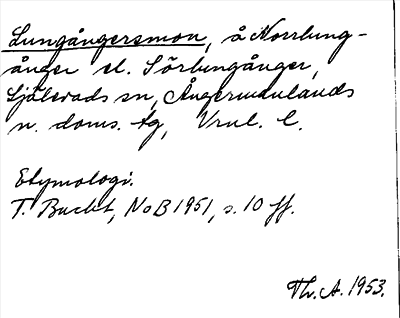 Lungångersmon, å Norrlung-
ånger el. Sörlungånger,
Själevads sn, Ångermanlands
n. doms. tg, Vrnl. l.
Etymologi.
T. Bucht, NoB 1951, s. 10 ff.
Th. A. 1953.